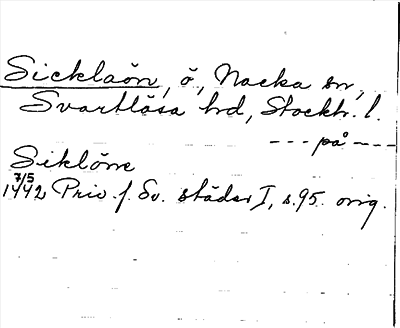 Sicklaön, ö, Nacka sn,
Svartlösa hd, Stockh. l.
--- på ---
Siklöne
7/5
1442 Priv. f. Sv. städer I, s. 95. orig.